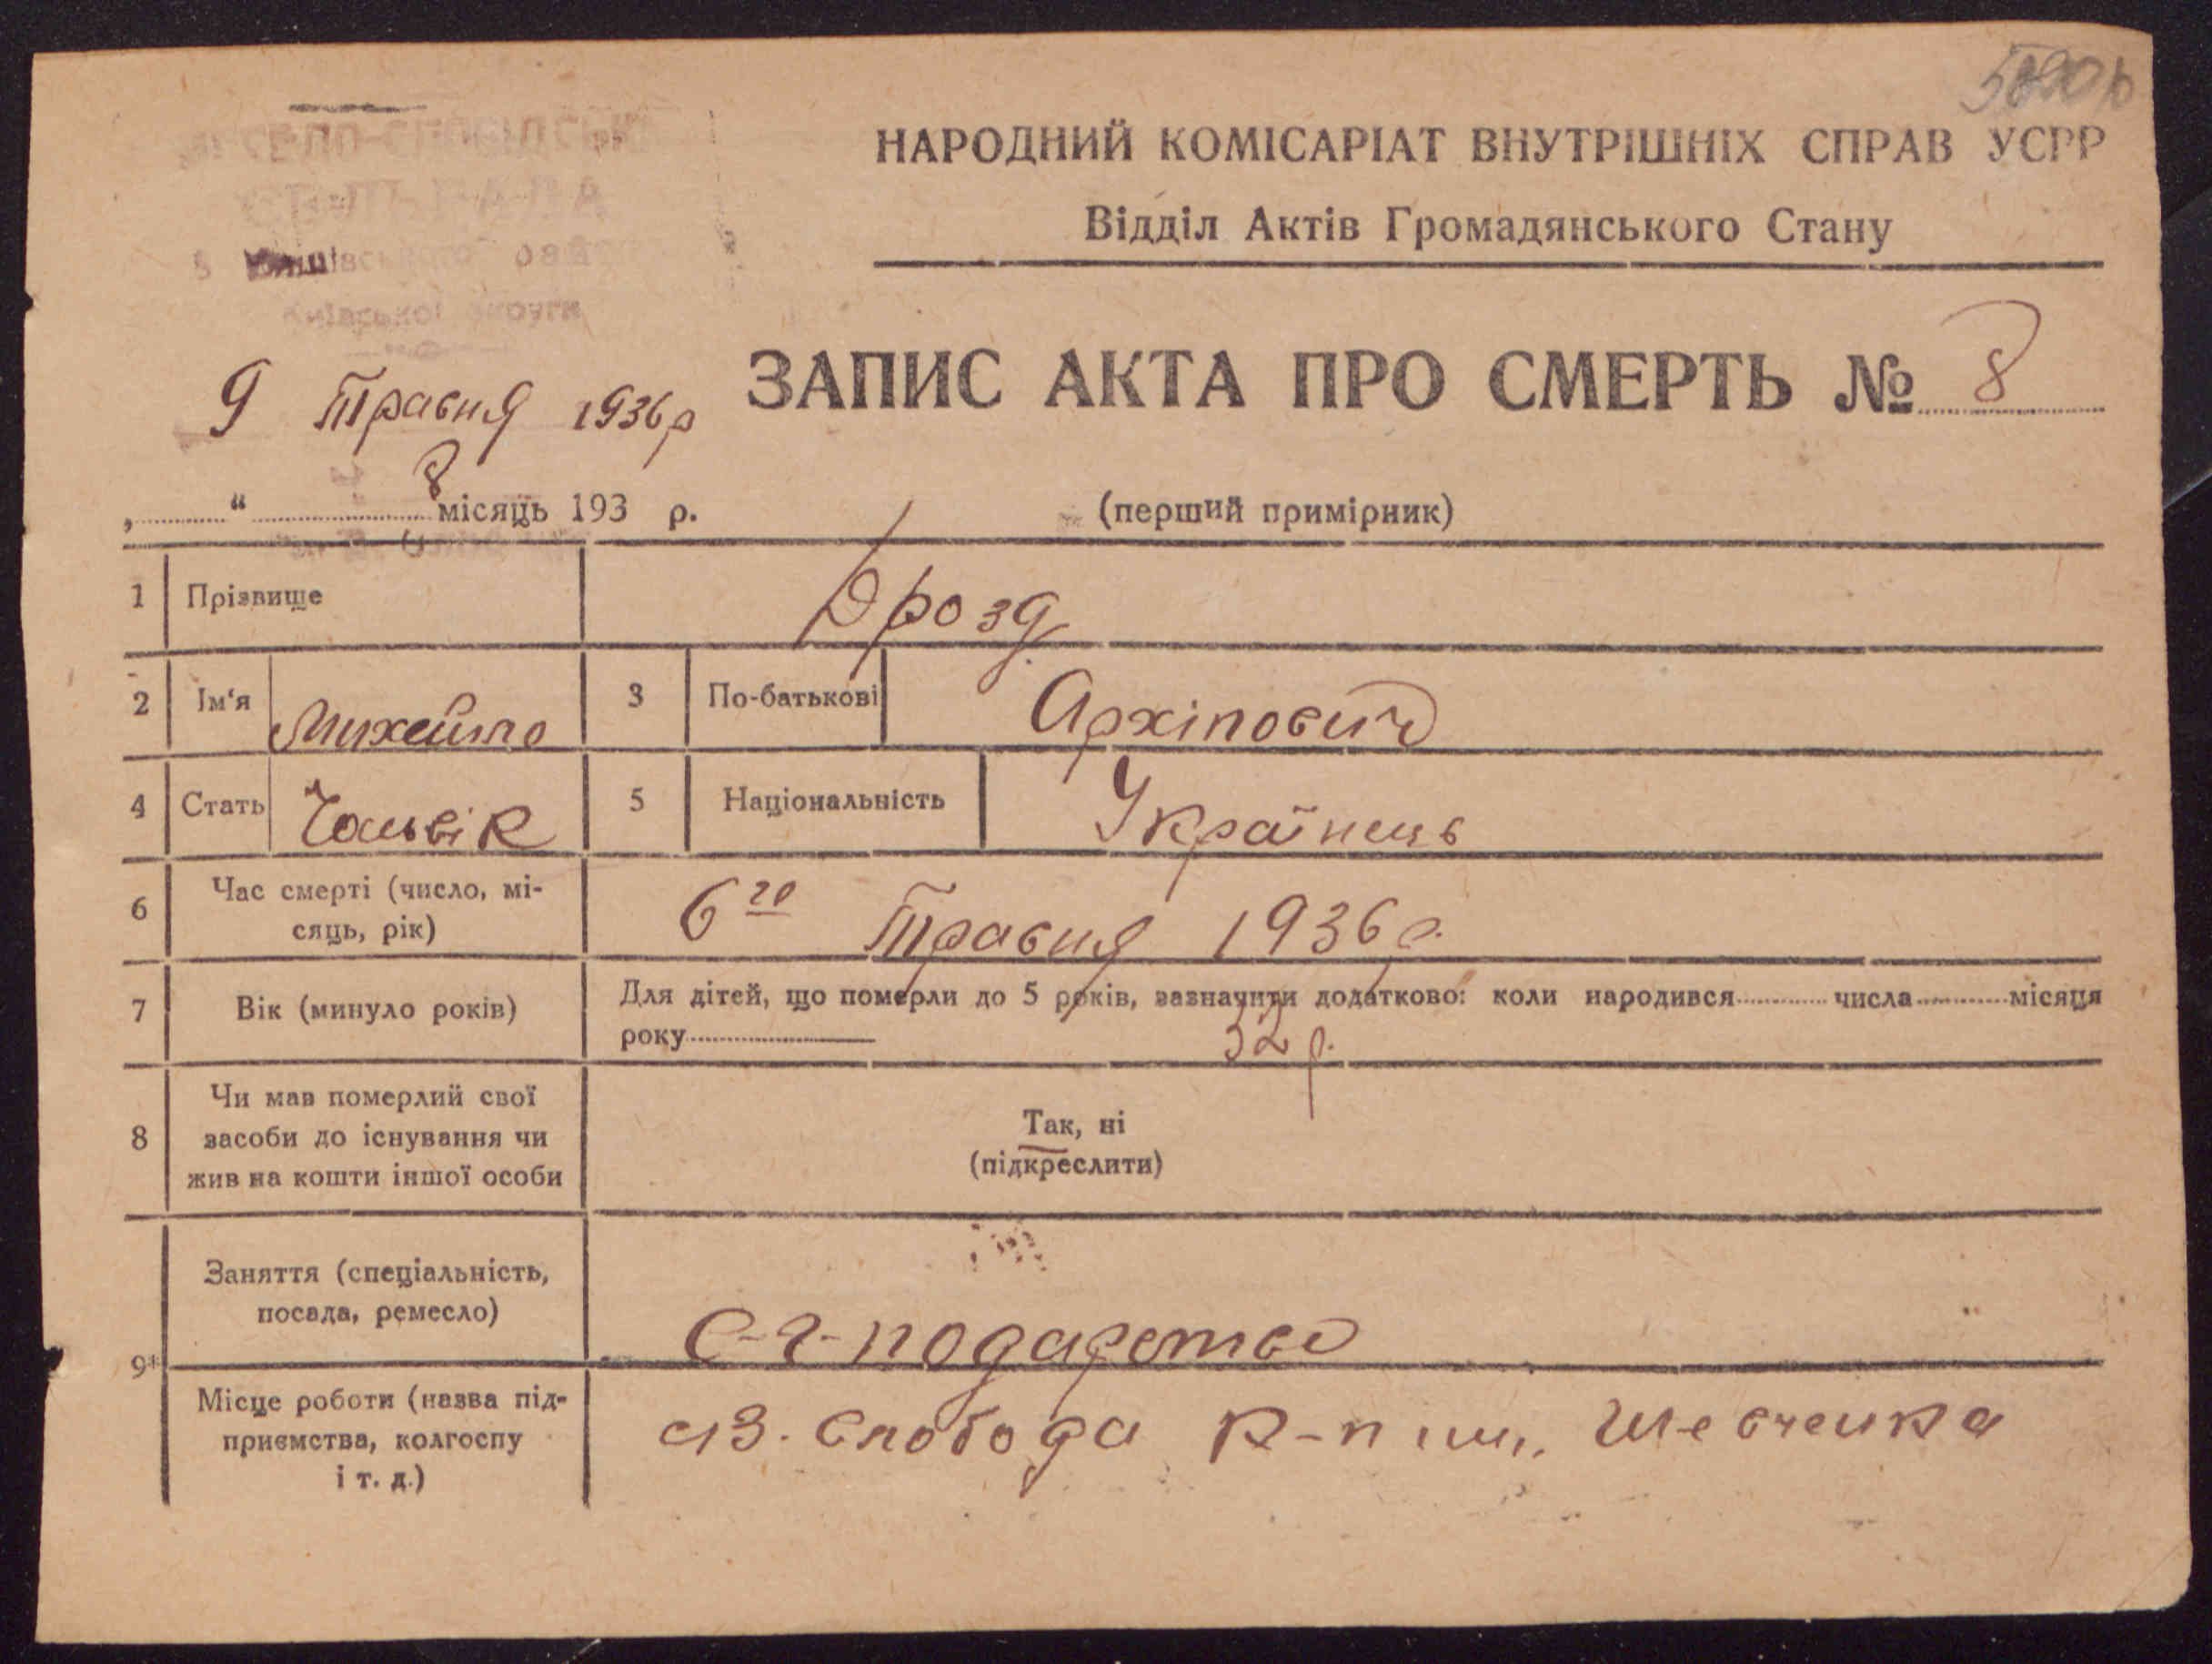 НАРОДНИЙ КОМІСАРІАТ ВНУТРІШНІХ СПРАВ УСРР
Відділ Актів Громадянського Стану
Київської округи
9 Травня 1936 р
ЗАПИС АКТА ПРО СМЕРТЬ № 8
8
„ “ місяць 193 р.
(перший примірник)
1 Прізвище Дрозд
2 Ім'я Михайло 3 По-батькові Архіпович
4 Стать Чоловік 5 Національність Українець
6 Час смерті (число, мі-
сяць, рік) 6го Травня 1936 р.
7 Вік (минуло років) Для дітей, що померли до 5 років, зазначити додатково: коли народився числа місяця
року 32 р.
8 Чи мав померлий свої
засоби до існування чи
жив на кошти іншої особи
Так, ні
(підкреслити)
9* Заняття (спеціальність,
посада, ремесло) С-г-подарство
Місце роботи (назва під-
приємства, колгоспу
і т. д.) Слобода К-п им. Шевченка